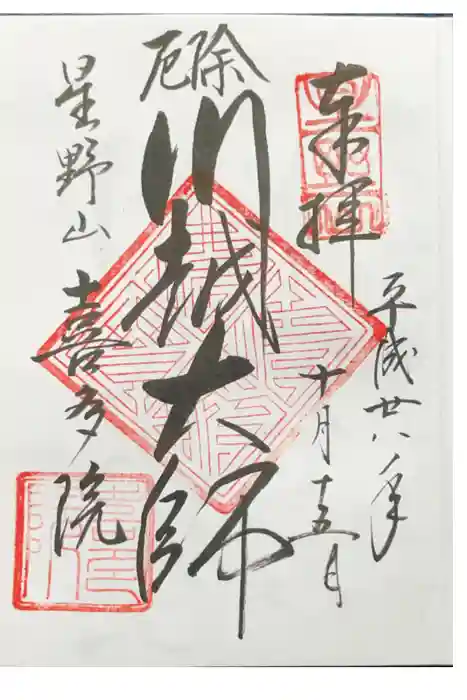 奉拝
平成廿八年
十月十五日
厄除
川越大師
星野山
喜多院